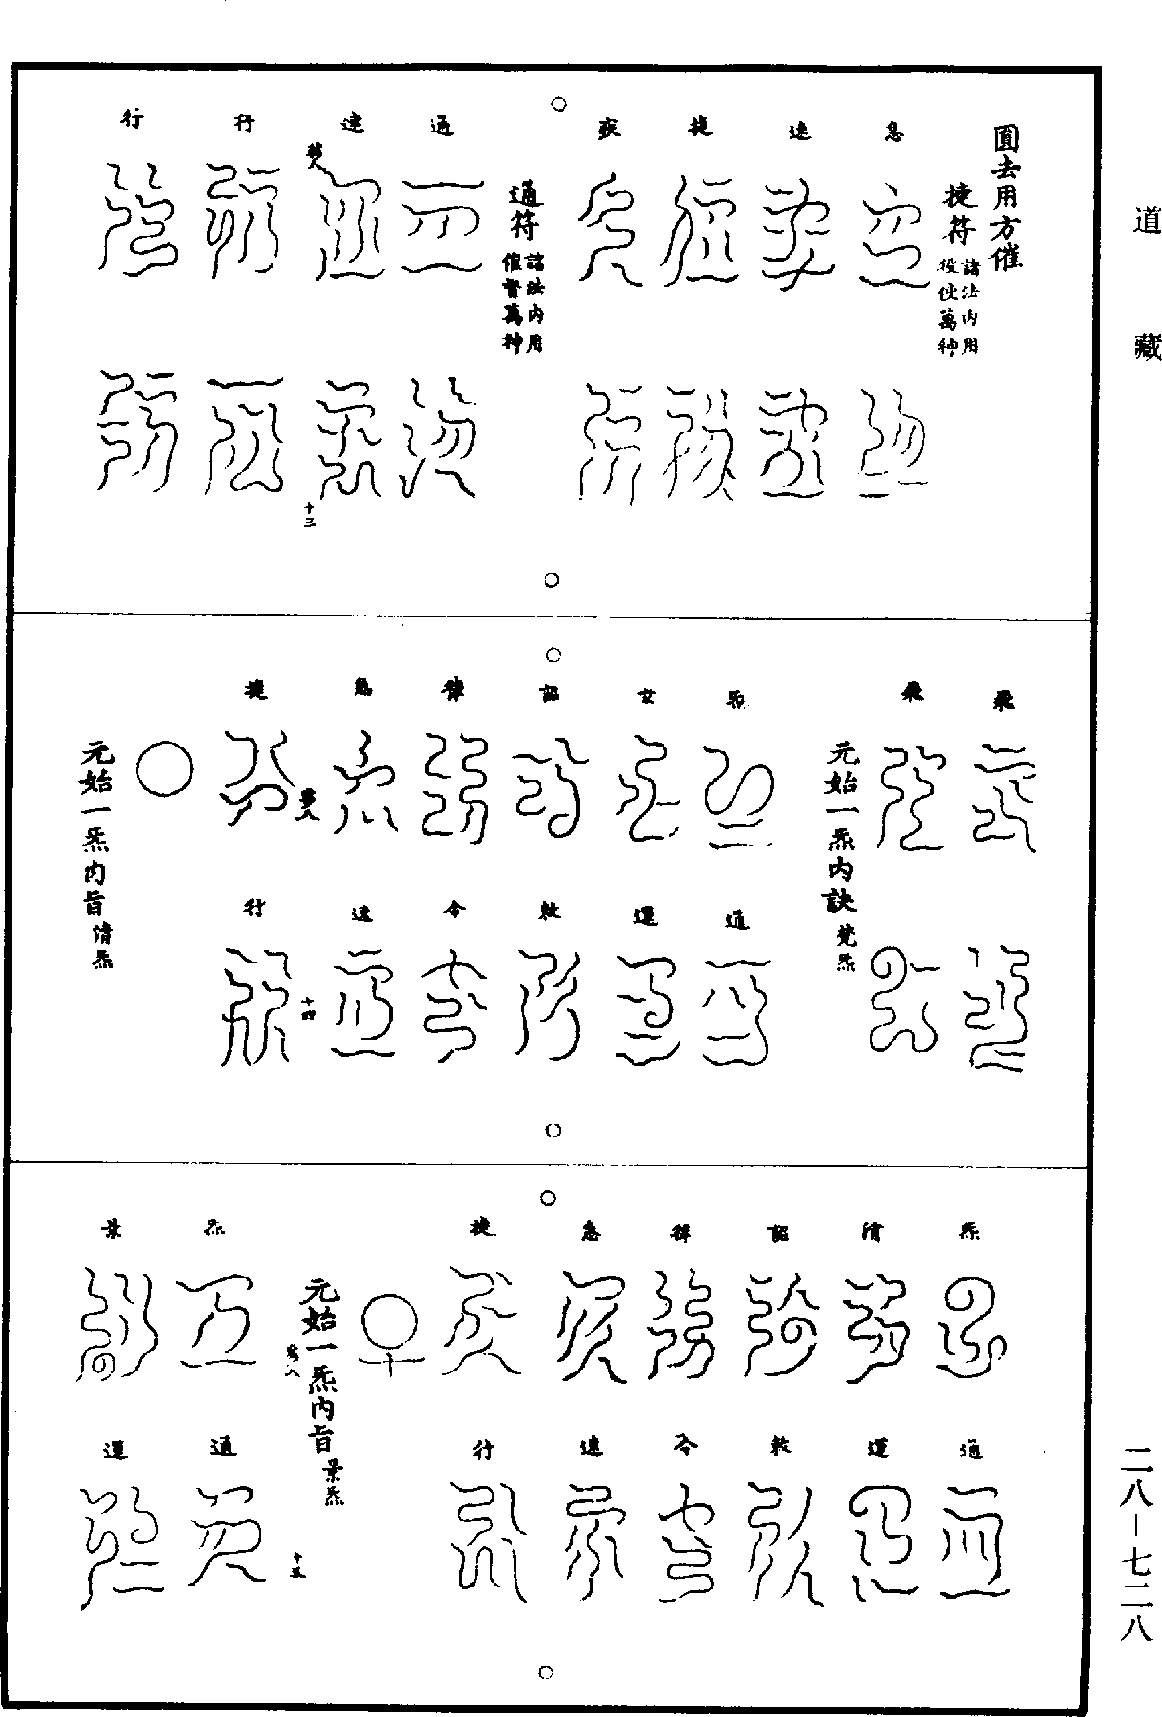 道藏
圓去用方催
捷符 諸法內用役使萬神
急 速 捷 疾
通符 諸法內用催督萬神
通 速 行 行
十三
飛 飛
元始一炁內訣 梵炁
炁 女 詔 律 急 捷
通 運 敕 令 速 行
十四
元始一炁內旨 清炁
炁 清 詔 律 急 捷
通 運 敕 令 速 行
元始一炁內旨 景炁
十五
炁 景
通 運
二八—七二八